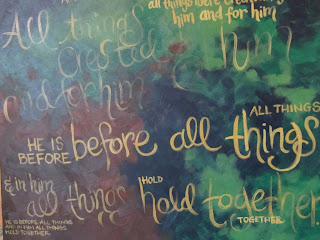 all things were created
him and for him
All things
Created him
and for him
ALL THINGS
HE IS
BEFORE before all things
HOLD
& in him
all things hold together.
TOGETHER
HE IS BEFORE ALL THINGS
AND IN HIM ALL THINGS
HOLD TOGETHER